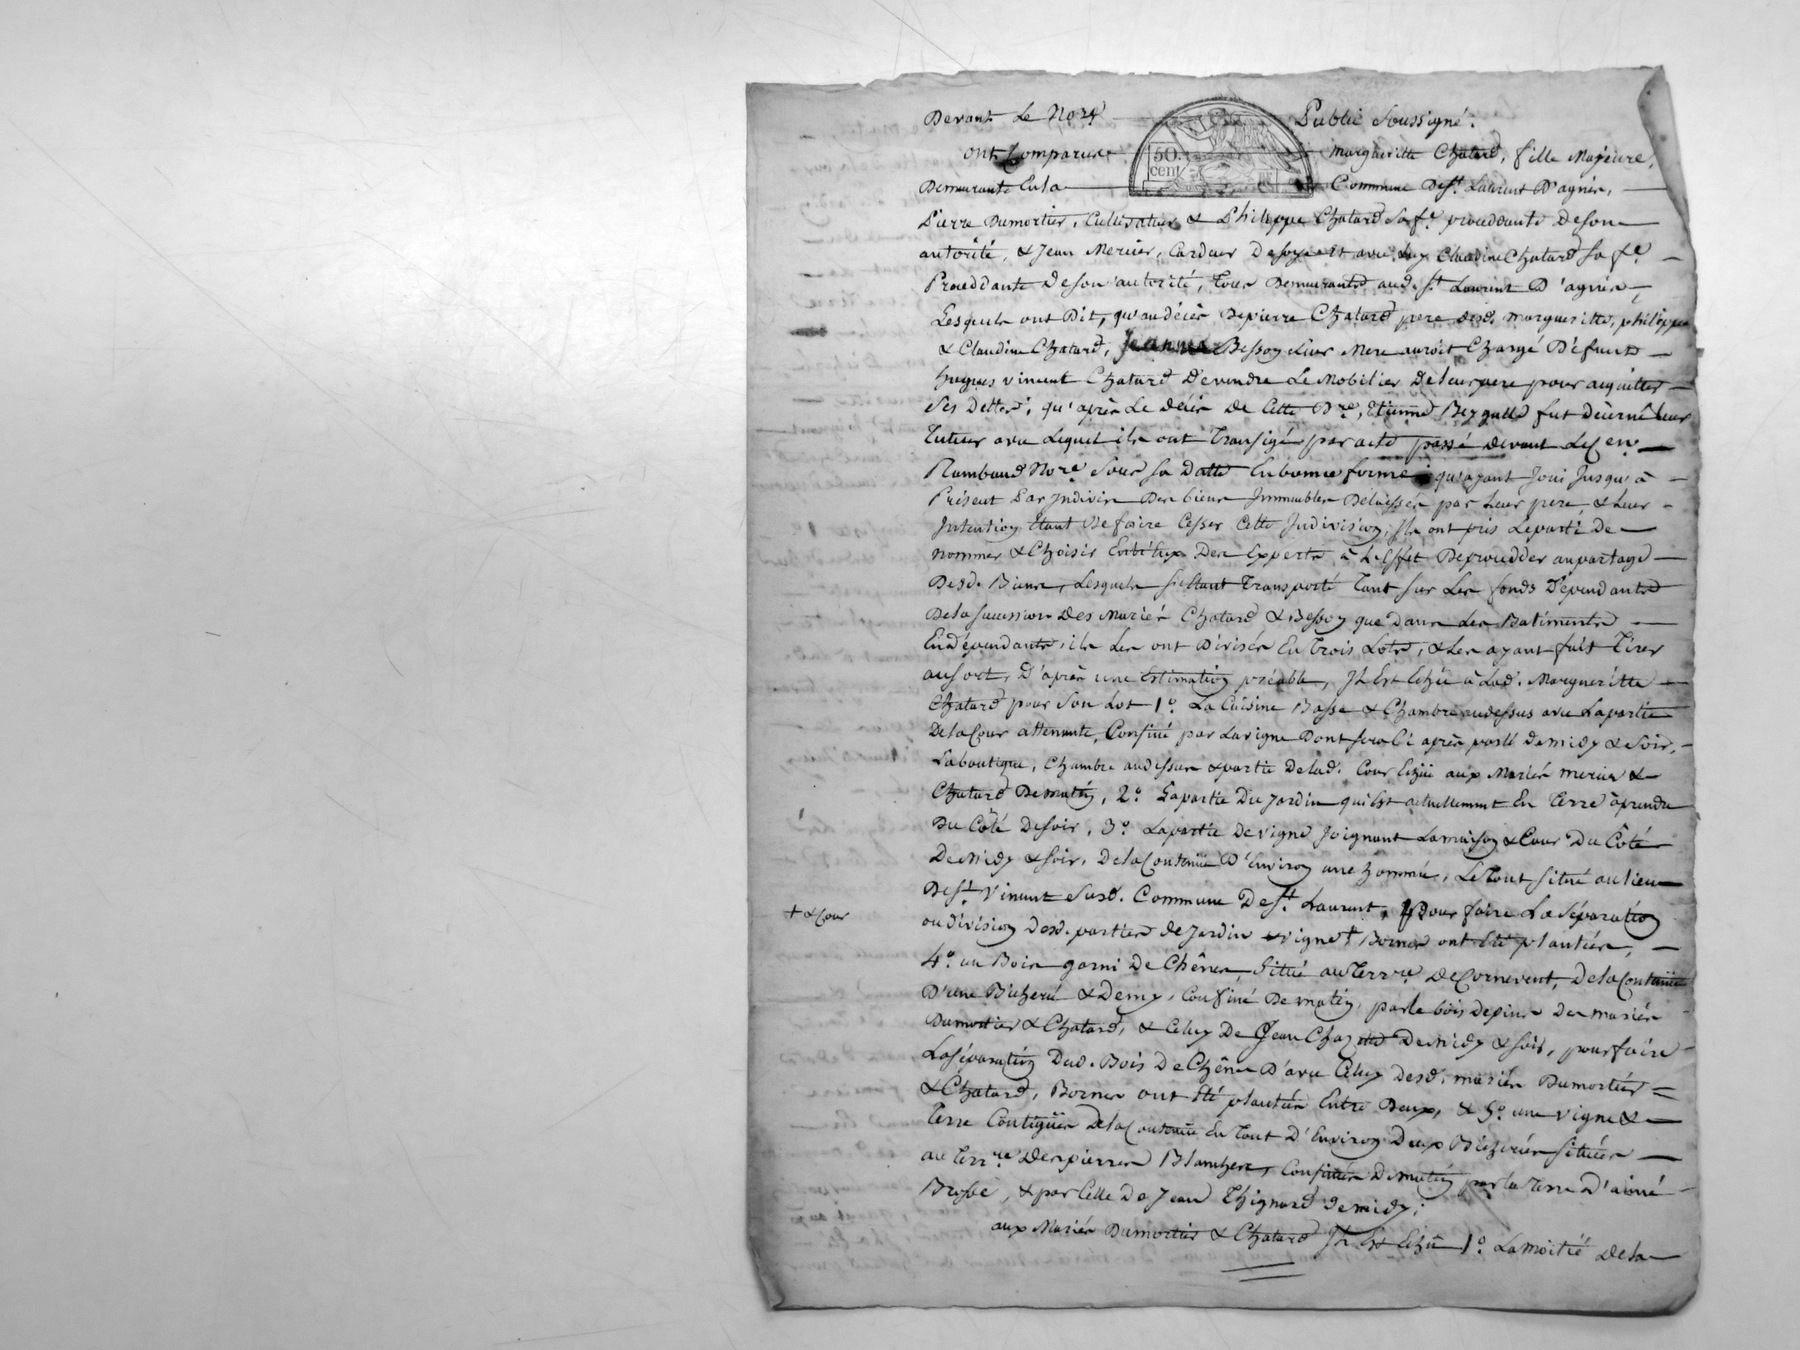 Devant Le No.re Public Soussigné.
ont Comparus Margueritte Chatard, fille Majeure,
50.
cent
Demeurante En la Commune De St. Laurent D'agnin,
Pierre Dumortier, Cultivateur & Philippe Chatard Sa fe. proceddante De Son
autorité, & Jean Mercier, Cardeur De soye et avec luy Claudine Chatard Sa fe.
Proceddante De Son autorité, Tous Demeurants aud. St. Laurent D'agnin,
Lesquels ont Dit, qu'au décès De pierre Chatard pere desd. Margueritte, philippe
& Claudine Chatard, Jeanne Besson Leur Mere auroit Chargé Défunt
hugues vincent Chatard De vendre Le Mobilier De leur pere pour acquitter
Ses Dettes; qu'après Le décès de Cette D.re, Etienne fut décerné Leur
Tuteur avec Lequel ils ont Transigé par acte passé devant Le Cen.
Rambaud No.re Sous Sa Datte En bonne forme; qu'ayant Joui Jusqu'à
Présent Par Jndivis Des biens Jmmeubles Délaissés par Leur pere, & Leur
Jntention Etant De faire Cesser Cette Jndivision, Ils ont pris Le parti De
nommer & Choisir Entr'Eux Des Experts à L'Effet De procedder au partage
Desd. Biens, Lesquels S'Etant Transporté Tant Sur Les fonds Dépendants
De la Succession Des Mariés Chatard & Besson que Dans Les Batiments
En dépendants, ils Les ont Divisés En Trois Lots, & Les ayant fait Tirer
au Sort, D'après une Estimation préable, Jl Est Echû à Lad. Margueritte
Chatard pour Son Lot 1.o La Cuisine Basse & Chambre audessus avec La partie
De la Cour attenante, Confiné par La vigne Dont Sera Ci après parlé de midy & Soir,
La boutique, Chambre audessus & partie De lad. Cour Echûe aux Mariés Mercier &
Chatard De matin, 2.o La partie Du Jardin qui Est actuellement En Terre à prendre
Du Côté De Soir, 3.o La partie De vigne Joignant La maison & Cour Du Côté
De Midy & Soir, De la Contenüe D'Environ une hommée, Le Tout Situé au lieu
De St. Vincent Susd. Commune De St. Laurent, Pour faire La Séparation
+ & Cour
ou division Desd. parties de Jardin & vigne + Bornes ont Eté plantées,
4.o un Bois garni De Chênes, Situé au Terr.re De Cornevent, De la Contenüe
D'une Bicherée & Demy, Confiné De matin par le bois De pins Des mariés
Dumortier & Chatard, & Celuy De Jean De Midy & Soir, pour faire
La Séparation Dud. Bois De Chêne D'avec Celuy Desd. mariés Dumortier
& Chatard, Bornes ont Eté plantées Entre Deux, & 5.o une vigne &
Terre Contigües De la Contenüe En Tout D'Environ Deux Bicherées Situées
au Terr.re Des pierres Blanches, Confinées De matin par la Terre D'aimé
Brosse, & par Celle De Jean Thignard de midy;
aux Mariés Dumortier & Chatard Jl Est Echû 1.o La moitié De la